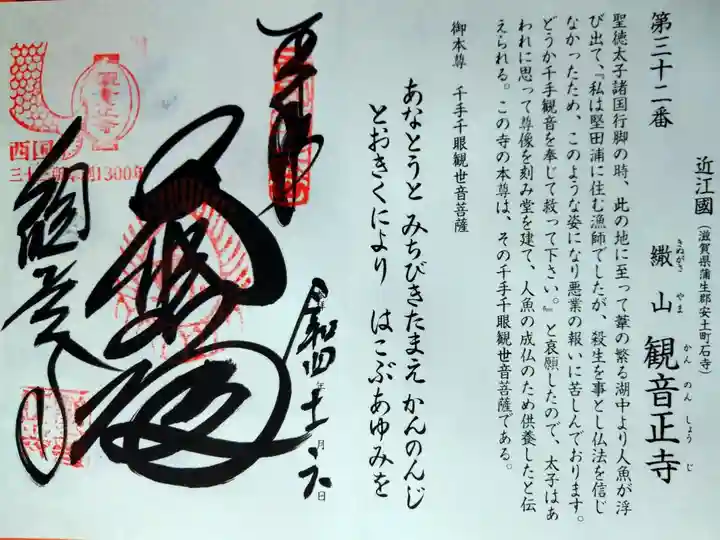 第三十二番
近江國（滋賀県蒲生郡安土町石寺）
繖山 観音正寺
きぬがさ やま かん のん しょう じ
聖徳太子諸国行脚の時、此の地に至って葦の繁る湖中より人魚が浮
び出て、『私は堅田浦に住む漁師でしたが、殺生を事とし仏法を信じ
なかったため、このような姿になり悪業の報いに苦しんでおります。
どうか千手観音を奉じて救って下さい。』と哀願したので、太子はあ
われに思って尊像を刻み堂を建て、人魚の成仏のため供養したと伝
えられる。この寺の本尊は、その千手千眼観世音菩薩である。
御本尊 千手千眼観世音菩薩
あなとうと みちびきたまえ かんのんじ
とおきくにより はこぶあゆみを
令和四年十一月六日
西国
三十三所草創1300年